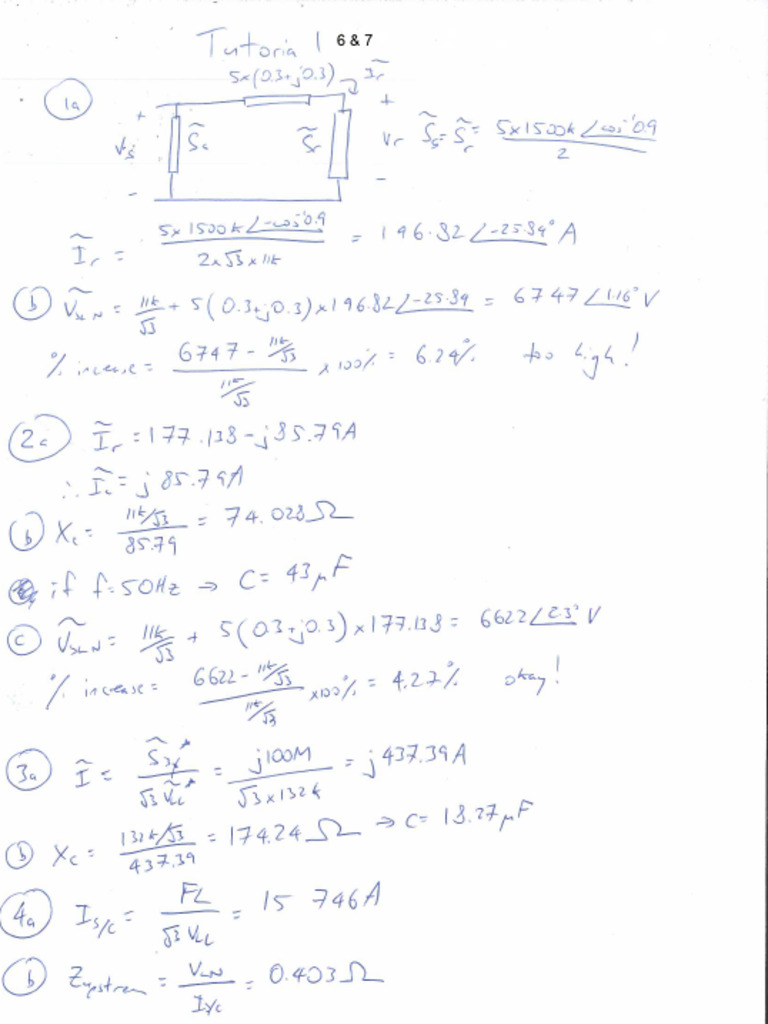 Tutorial 6 & 7
5x(0.3+j0.3) Ĩr
1a + Vs - S̃s S̃r + Vr - S̃s = S̃r = 5x1500k∠cos⁻¹0.9 / 2
Ĩr = 5x1500k∠-cos⁻¹0.9 / 2x√3x11k = 196.82∠-25.84° A
b ṼSLN = 11k/√3 + 5(0.3+j0.3)x196.82∠-25.84 = 6747∠1.16° V
% increase = (6747 - 11k/√3) / (11k/√3) x100% = 6.24% too high!
2a Ĩr = 177.138 - j85.79A
∴ Ĩc = j85.79A
b Xc = (11k/√3) / 85.79 = 74.028Ω
if f=50Hz → C = 43μF
c ṼSLN = 11k/√3 + 5(0.3+j0.3)x177.138 = 6622∠2.3° V
% increase = (6622 - 11k/√3) / (11k/√3) x100% = 4.27% okay!
3a Ĩ = S̃3φ* / √3 ṼLL* = j100M / √3x132k = j437.39A
b Xc = (132k/√3) / 437.39 = 174.24Ω → C = 18.27μF
4a Is/c = FL / √3 VLL = 15 746A
b Zupstream = VLN / Is/c = 0.403Ω